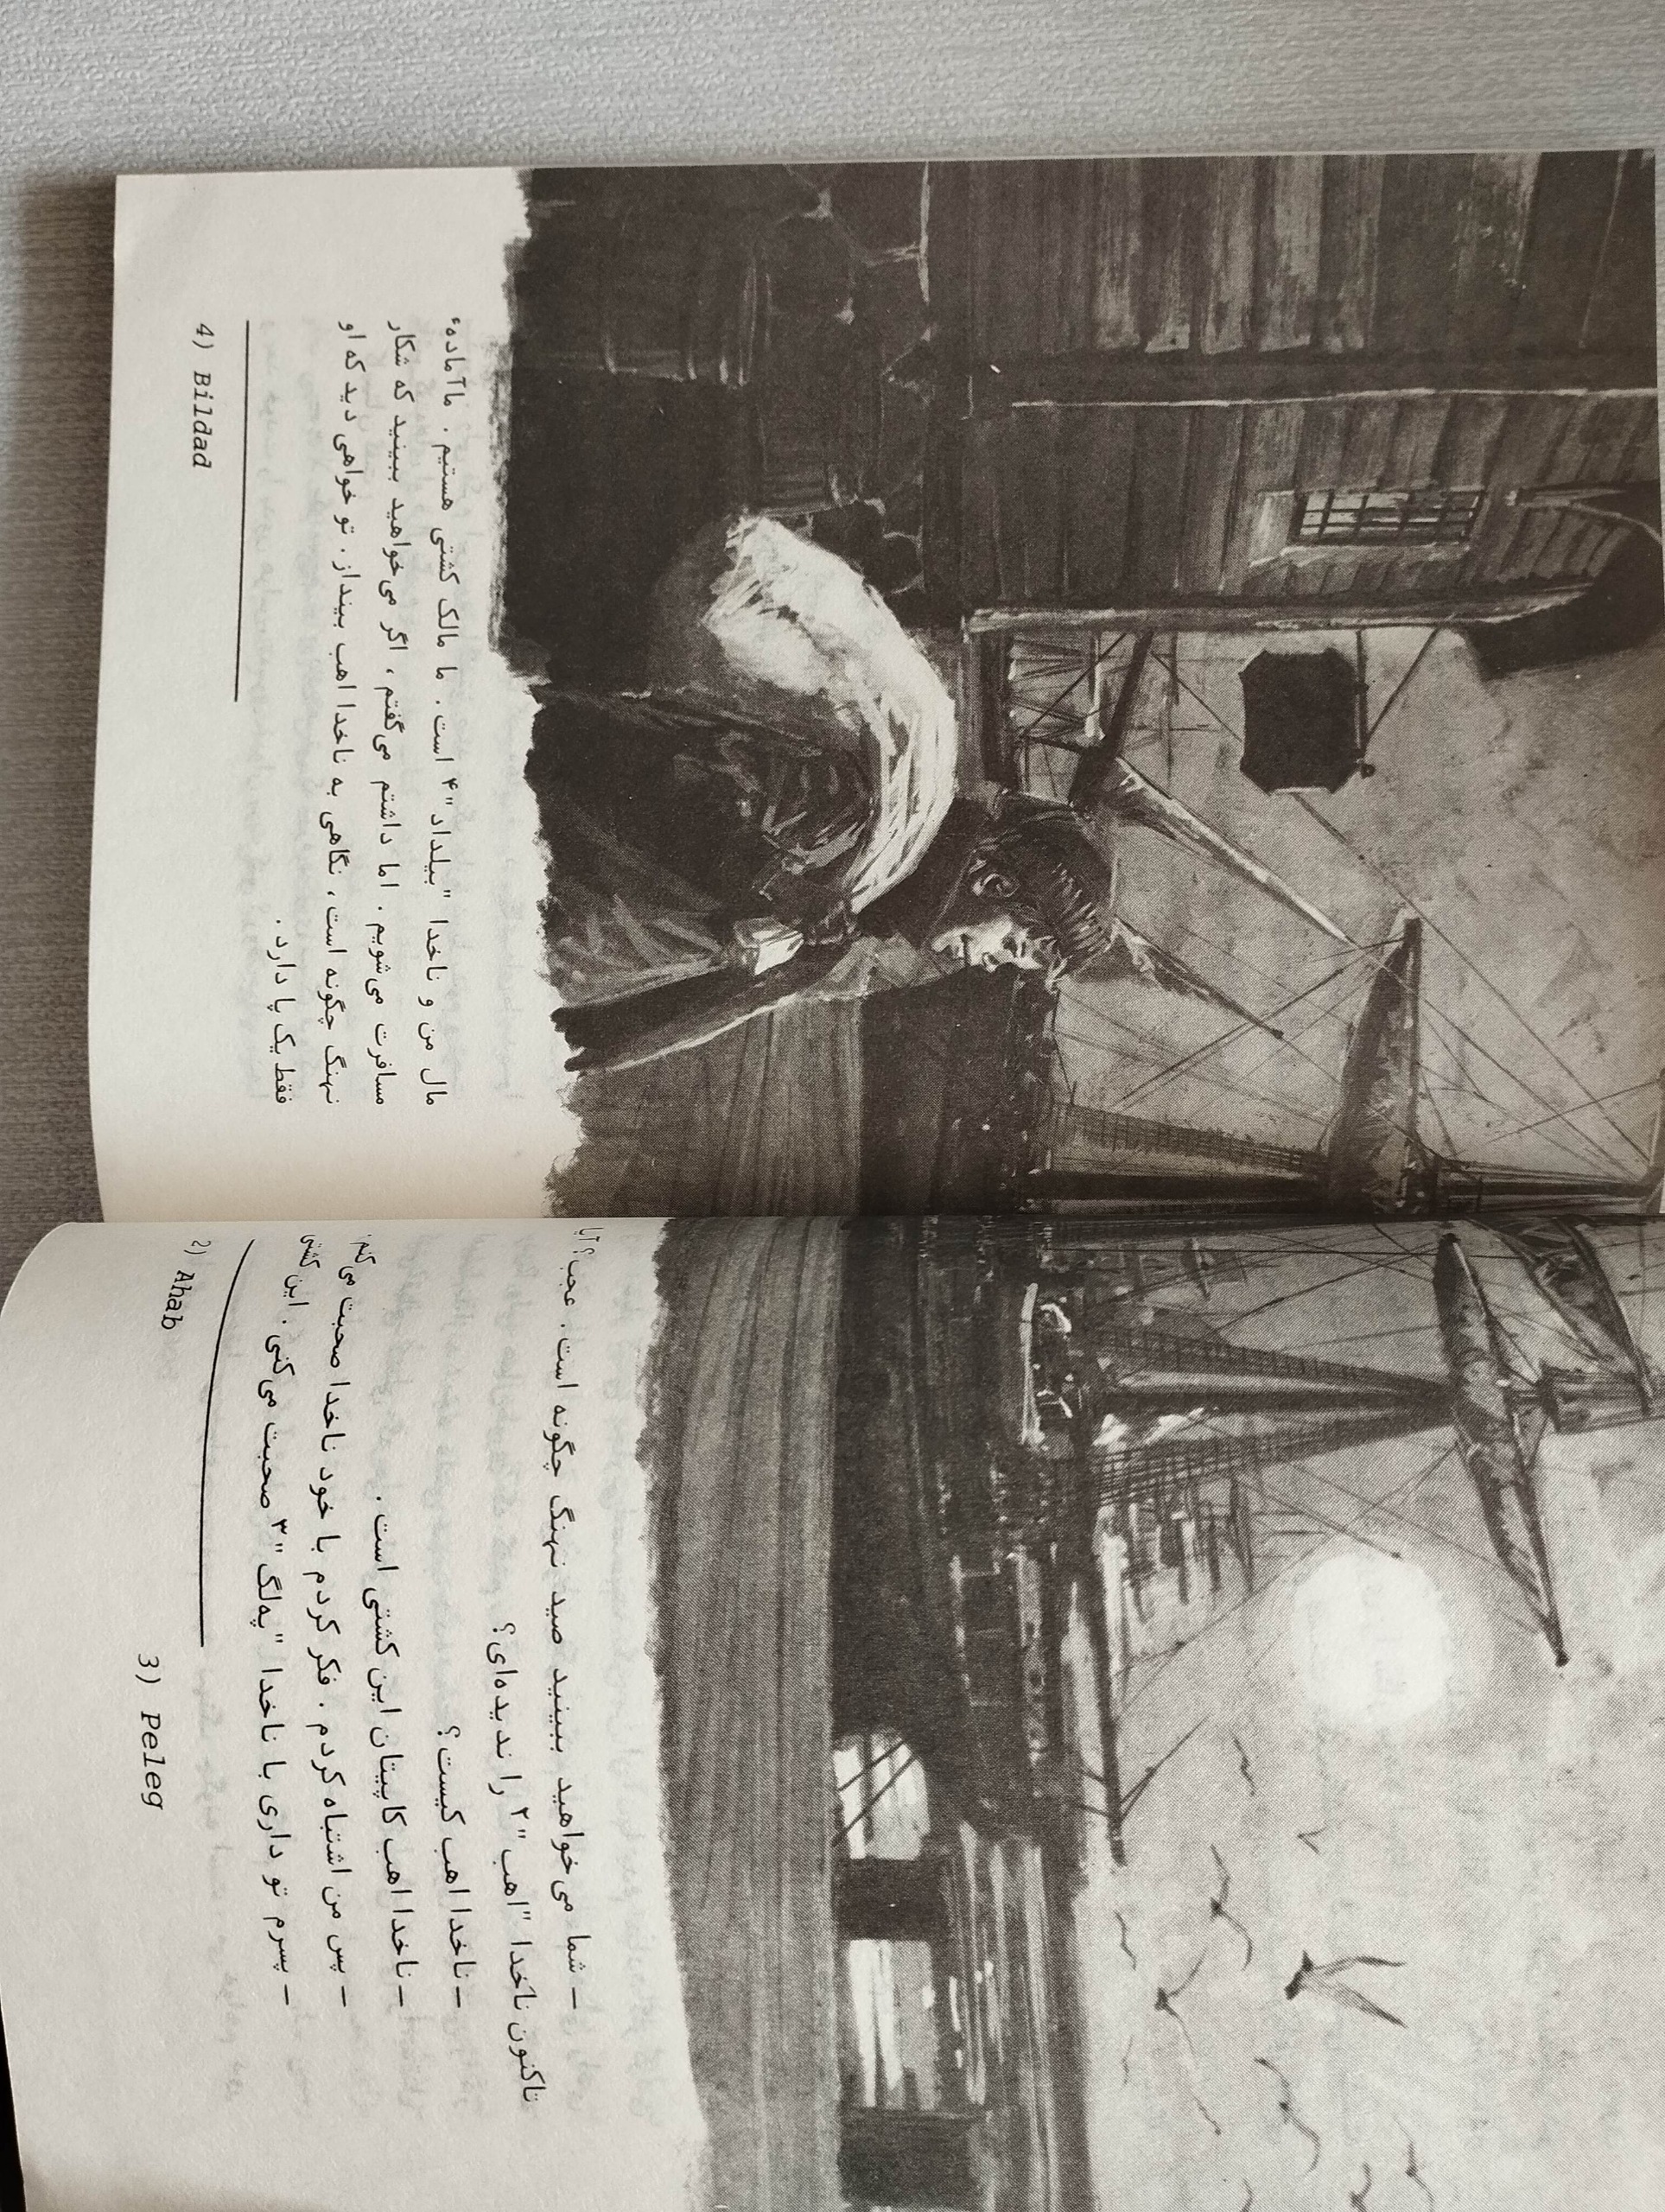 ـ شما می‌خواهید ببینید صید نهنگ چگونه است. عجب؟ آیا
تاکنون ناخدا "اهب"۲ را ندیده‌ای؟
ـ ناخدا اهب کیست؟
ـ ناخدا اهب کاپیتان این کشتی است.
ـ پس من اشتباه کردم. فکر کردم با خود ناخدا صحبت می‌کنم.
ـ پسرم تو داری با ناخدا "په‌لگ"۳ صحبت می‌کنی. این کشتی
2) Ahab
3) Peleg
مال من و ناخدا "بیلداد"۴ است. ما مالک کشتی هستیم. ما آمادهء
مسافرت می‌شویم. اما داشتم می‌گفتم، اگر می‌خواهید ببینید که شکار
نهنگ چگونه است، نگاهی به ناخدا اهب بینداز. تو خواهی دید که او
فقط یک پا دارد.
4) Bildad